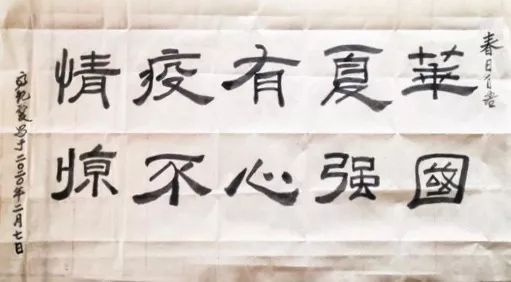 春日
華夏有疫情
國强心不惊
书于二〇二〇年二月七日